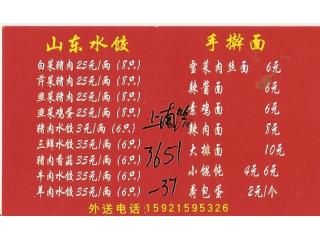 山东水饺
白菜猪肉25元/两(8只)
芹菜猪肉25元/两(8只)
韭菜猪肉25元/两(8只)
韭菜鸡蛋25元/两(8只)
猪肉水饺3元/两(6只)
三鲜水饺35元/两(6只)
猪肉香菇35元/两(6只)
牛肉水饺35元/两(6只)
羊肉水饺35元/两(6只)
手擀面
雪菜肉丝面 6元
辣酱面 6元
素鸡面 6元
辣肉面 8元
大排面 10元
小馄饨 4元 6元
荷包蛋 2元/个
上南路
3651
-37
外送电话:15921595326